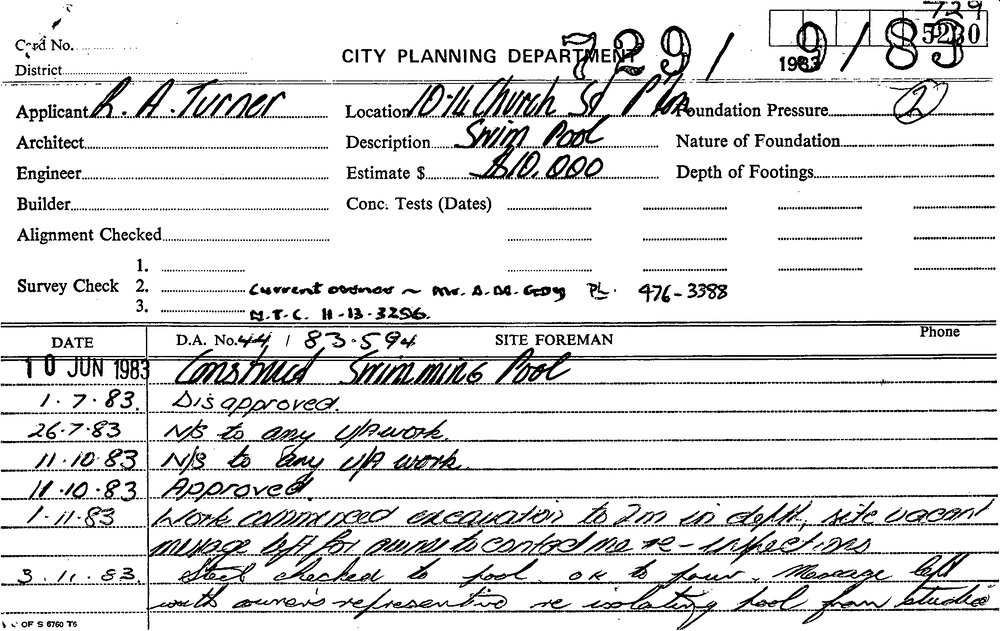 729
5230
Card No.
729/9/83
CITY PLANNING DEPARTMENT
1983
District
Applicant R. A. Turner
Location 10-14 Church St
Foundation Pressure
Architect
Description Swim Pool
Nature of Foundation
Engineer
Estimate $ $10,000
Depth of Footings
Builder
Conc. Tests (Dates)
Alignment Checked
Survey Check
1.
2. Current owner ~ Mr. PL. 476-3388
3. N.T.C. 11-13-3256.
DATE D.A. No. 44 / 83.594 SITE FOREMAN Phone
10 JUN 1983 Construct Swimming Pool
1.7.83. Disapproved.
26.7.83 N/S to any U/A work.
11.10.83 N/S to any U/A work.
11.10.83 Approved.
1.11.83 Work commenced excavation to 2m in depth, site vacant
message left for owner to contact me re-inspections
3.11.83. Steel checked to pool. OK to pour. Message left
with owner's representive re isolating pool from studio
OF S 6760 T6